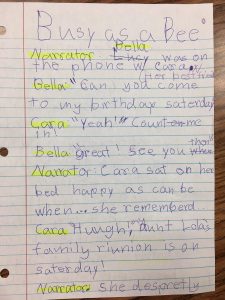 Busy as a Bee
Bella
Narrator was on
the phone w/ Cara,
Her best friend
Bella: "Can you come
to my birthday saterday
Cara "Yeah!" Count me
in!
Bella great! See you
Narrator: Cara sat on her
bed happy as can be
when... she rememberd
Cara "Hungh, aunt Ida's
family riunion is on
saterday!
Narrator she despretly